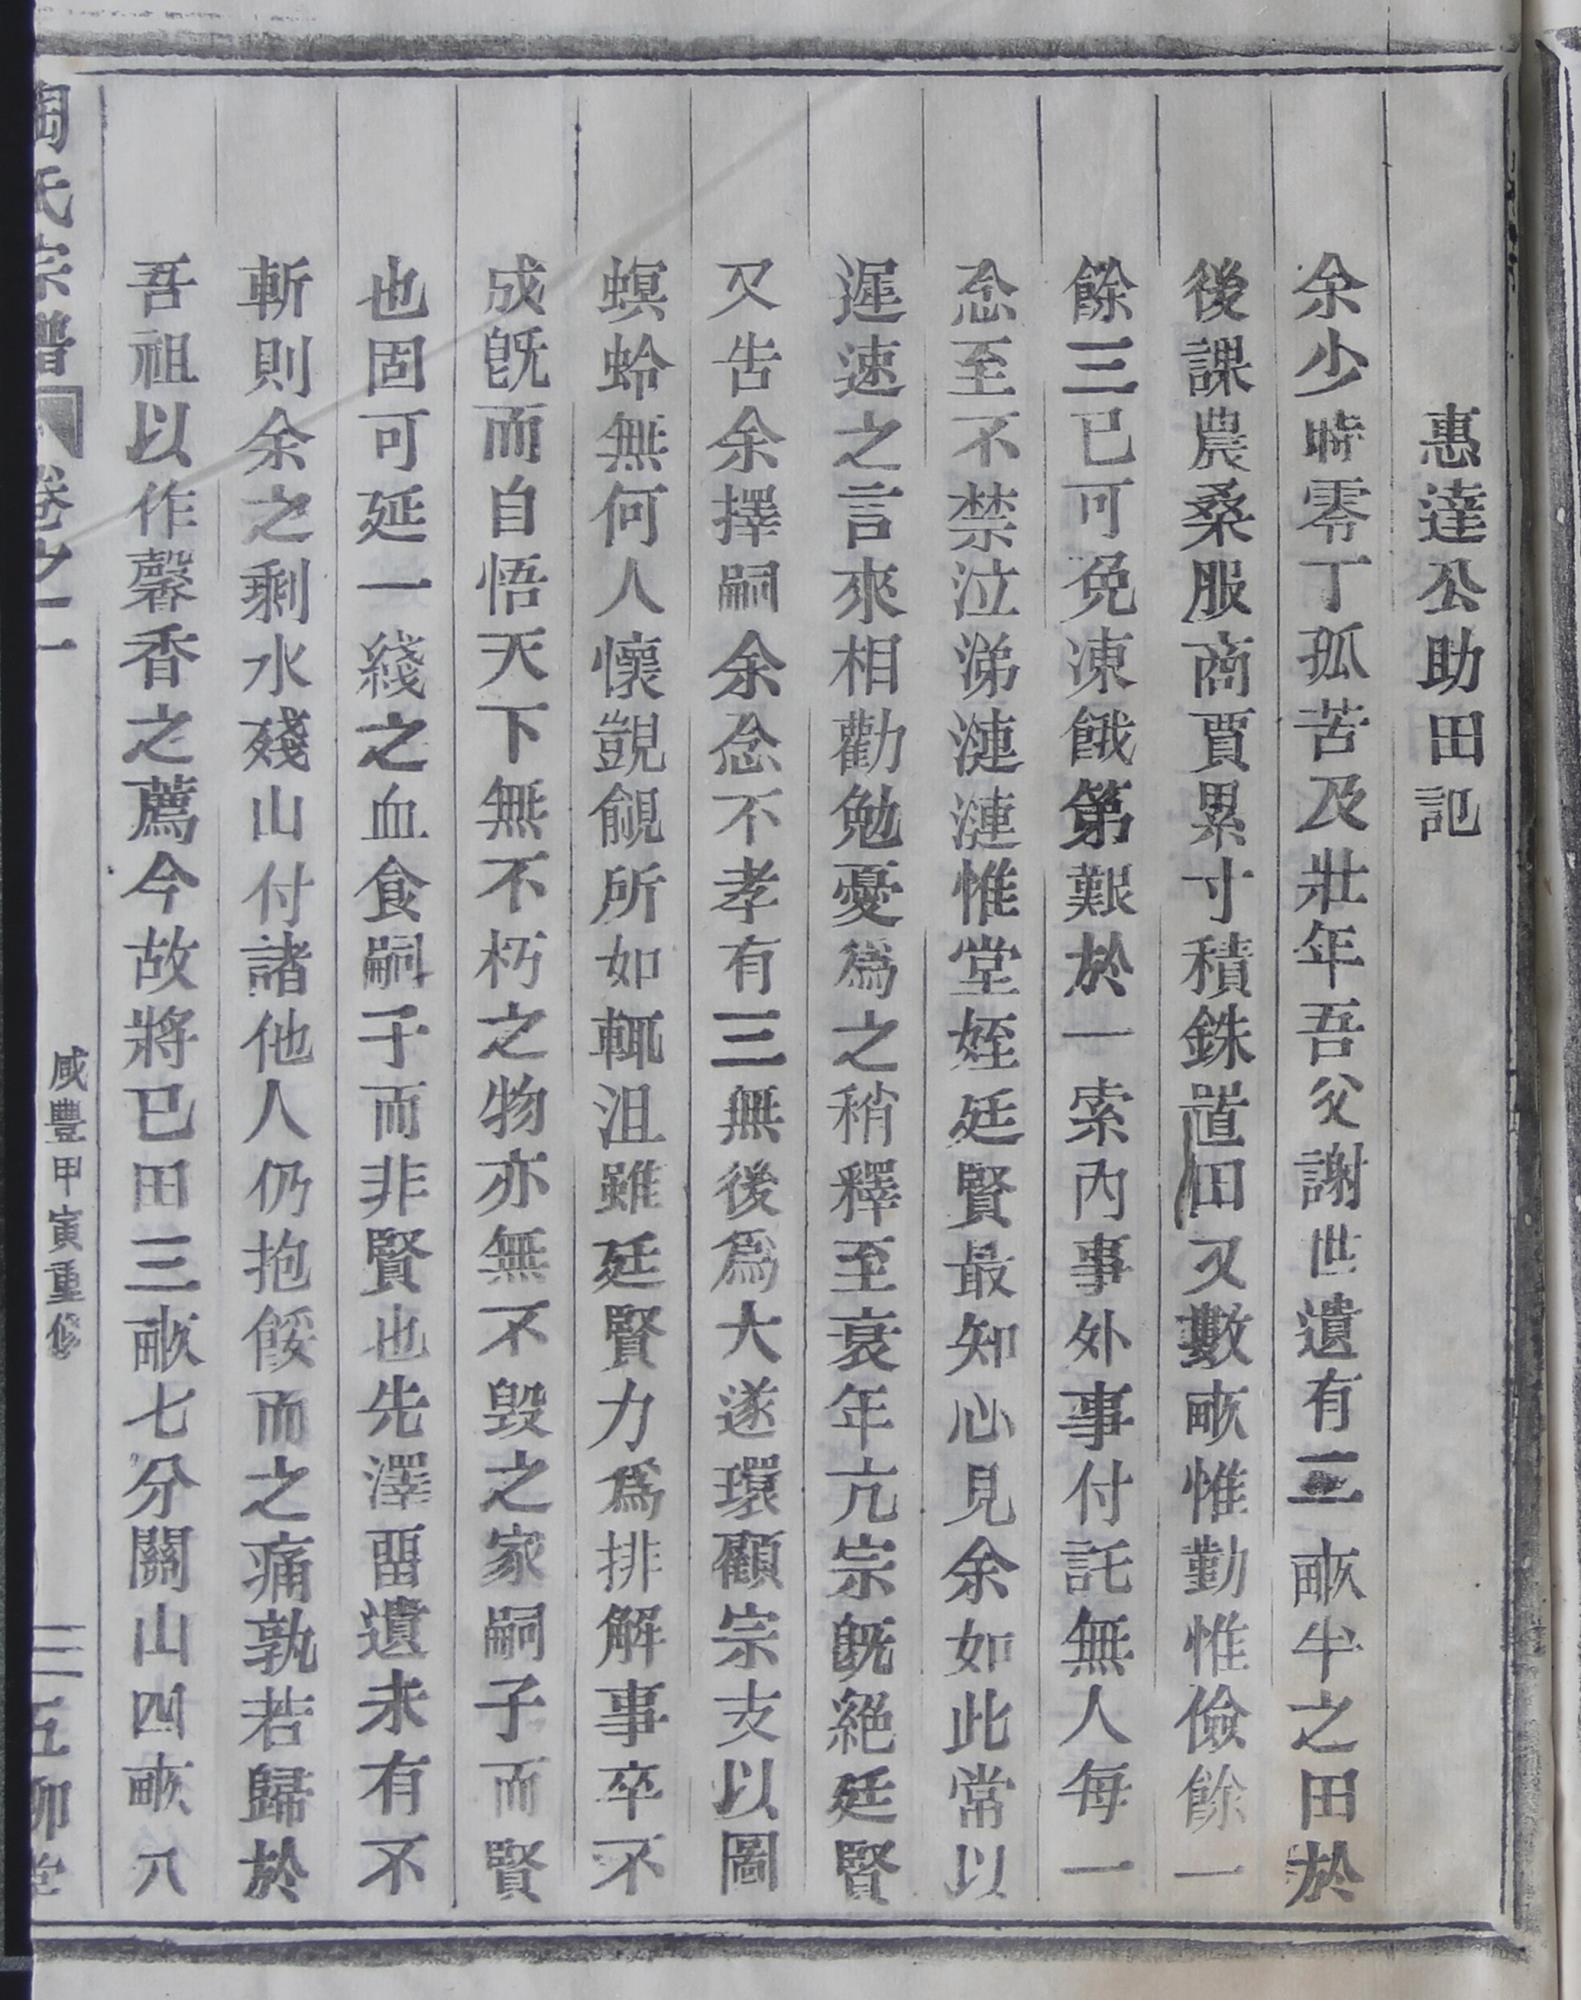 惠達公助田記
余少時零丁孤苦及壯年吾父謝世遺有三畝半之田於
後課農桑服商賈累寸積銖置田又數畝惟勤惟儉餘一
餘三已可免凍餓第艱於一索內事外事付託無人每一
念至不禁泣涕漣漣惟堂姪廷賢最知心見余如此常以
遲速之言來相勸勉憂為之稍釋至衰年亢宗既絕廷賢
又告余擇嗣余念不孝有三無後為大遂環顧宗支以圖
螟蛉無何人懷覬覦所如輒沮雖廷賢力為排解事卒不
成既而自悟天下無不朽之物亦無不毀之家嗣子而賢
也固可延一綫之血食嗣子而非賢也先澤畱遺未有不
斬則余之剩水殘山付諸他人仍抱餒而之痛孰若歸於
吾祖以作馨香之薦今故將已田三畝七分關山四畝八
陶氏宗譜 卷之一 咸豐甲寅重修 三 五柳堂